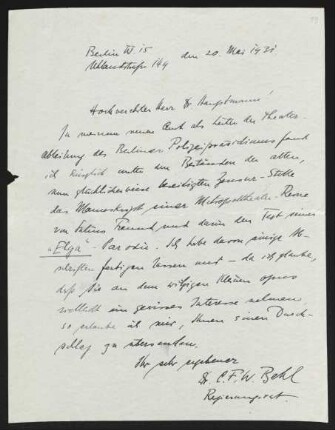 Berlin W. 15
Uhlandstraße 149 den 20. Mai 1931
Hochverehrter Herr Dr. Hauptmann!
In meinem neuen Amt als Leiter der Theater-
abteilung des Berliner Polizeipräsidiums fand
ich kürzlich unter den Beständen der alten,
nun glücklicherweise beseitigten Zensur-Stelle
das Manuskript einer Metropoltheater-Revue
von Julius Freund und darin den Text einer
„Elga“-Parodie. Ich habe davon einige Ab-
schriften fertigen lassen und – da ich glaube,
daß Sie an dem witzigen kleinen opus
vielleicht ein gewisses Interesse nehmen –
so erlaube ich mir, Ihnen einen Durch-
schlag zu übersenden.
Ihr sehr ergebener
Dr. C. F. W. Behl
Regierungsrat.